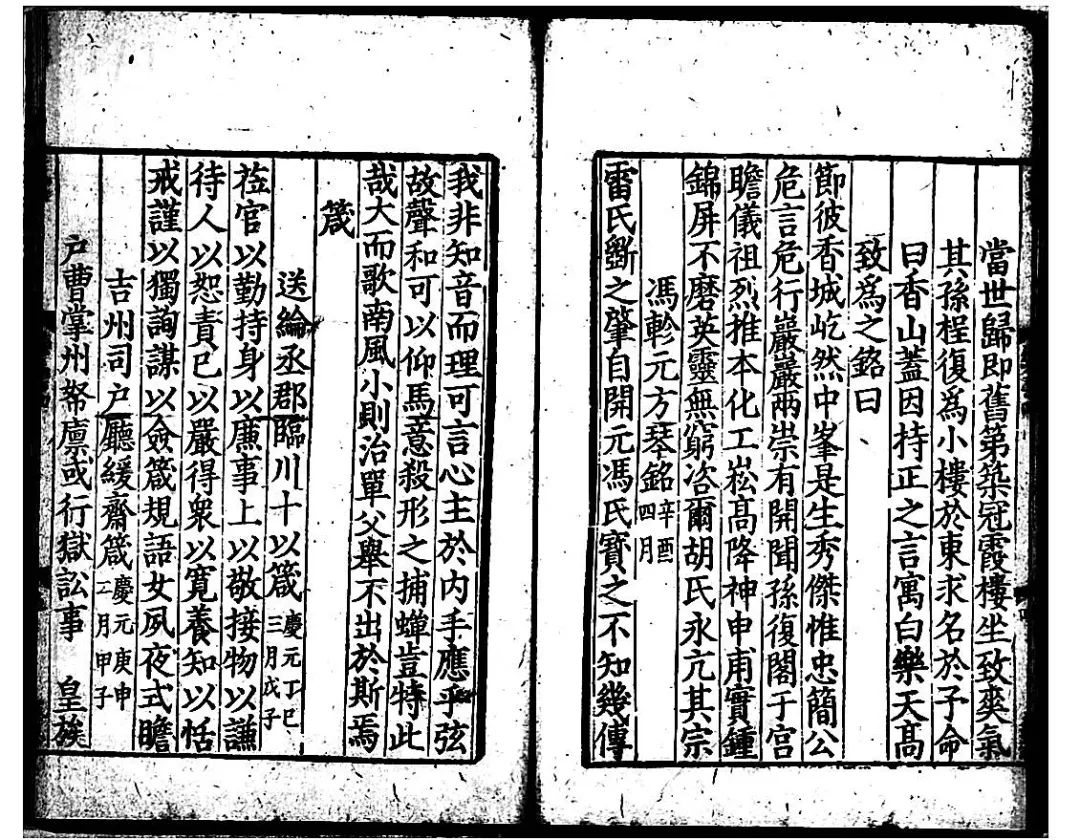 當世歸即舊第築冠霞樓坐致爽氣
其孫桯復為小樓於東求名於子命
曰香山蓋因持正之言寓白樂天高
致為之銘曰
節彼香城屹然中峯是生秀傑惟忠簡公
危言危行巖巖兩崇有開聞孫復閣于宮
瞻儀祖烈推本化工崧高降神申甫實鍾
錦屏不磨英靈無窮咨爾胡氏永亢其宗
馮軫元方琴銘辛酉四月
雷氏斵之肇自開元馮氏寶之不知幾傳
我非知音而理可言心主於內手應乎弦
故聲和可以仰馬意殺形之捕蟬豈特此
哉大而歌南風小則治單父舉不出於斯焉
箴
送綸丞郡臨川十以箴慶元丁巳三月戊子
莅官以勤持身以廉事上以敬接物以謙
待人以恕責己以嚴得衆以寬養知以恬
戒謹以獨詢謀以僉箴規語女夙夜式瞻
吉州司户廳緩齋箴慶元庚申二月甲子
户曹掌州帑廪或行獄訟事 皇族